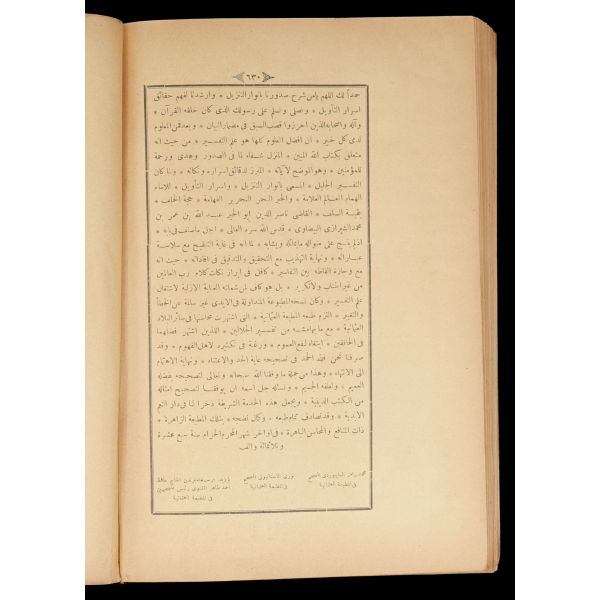 ٦٣٠
حمداً لك اللهم يامن شرح صدورنا بانوار التنزيل * وارشدنا لفهم حقائق
اسرار التأويل * ونصلى ونسلم على رسولك الذى كان خلقه القرآن *
وآله واصحابه الذين احرزوا قصب السبق فى مضمار البيان * وبعد فمن المعلوم
لدى كل خبير * ان افضل العلوم كلها هو علم التفسير * من حيث انه
متعلق بكتاب الله المبين * المنزل شفاء لما فى الصدور وهدى ورحمة
للمؤمنين * وهو الموضح لآياته * المبرز لدقائق اسراره ونكاته * ولما كان
التفسير الجليل * المسمى بانوار التنزيل * واسرار التأويل * للامام
الهمام العالم العلامة * والحبر البحر النحرير الفهامة * حجة الخلف *
بقية السلف * القاضى ناصر الدين ابو الخير عبد الله بن عمر بن
محمد الشيرازى البيضاوى * قدس الله سره العالى * اجل ماصنف فى بابه *
اذ لم ينسج على منواله مايماثله ويشابه * لما انه فى غاية التنقيح مع سلاسة
عباراته * ونهاية التهذيب مع التحقيق والتدقيق فى افاداته * حيث انه
مع وجازة الفاظه بين التفاسير * كافل فى ابراز نكات كلام رب العالمين
من غير اطناب ولا تكرير * بل هو كاف لمن شملته العناية الازلية لاشتغال
علم التفسير * وكان نسخه المطبوعة المتداولة فى الايدى غير سالمة عن الخطأ
والتغيير * التزم طبعه المطبعة العثمانية * التى اشتهرت محاسنها فى سائر البلاد
العثمانية * مع مابهامشه من تفسير الجلالين * اللذين اشتهر فضلهما
فى الخافقين * استفادة لنفع العموم * ورغبة فى تكثيره لاهل الفهوم * وقد
صرفنا نحن فلله الحمد فى تصحيحه غاية الجد والاعتناء * ونهاية الاهتمام
الى الانتهاء * وهذا من جملة ماوفقنا الله سبحانه وتعالى لتصحيحه بفضله
العميم * ولطفه الجسيم * ونسأله جل اسمه ان يوفقنا لتصحيح امثاله
من الكتب الدينية * ويجعل هذه الخدمة الشريفة ذخرا لنا فى دار النعم
الابدية * وقد تصادف تمام طبعه * وكمال نضجه * بتلك المطبعة الزاهرة *
ذات المنافع والمحاسن الباهرة * فى اواخر شهر المحرم الحرام سنة سبع عشرة
وثلاثمائة والف
محمد المصحح
فى المطبعة العثمانية
نورى الاستانبولى المصحح
فى المطبعة العثمانية
الحاج حافظ
احمد طاهر القنوى رئيس المصححين
فى المطبعة العثمانية